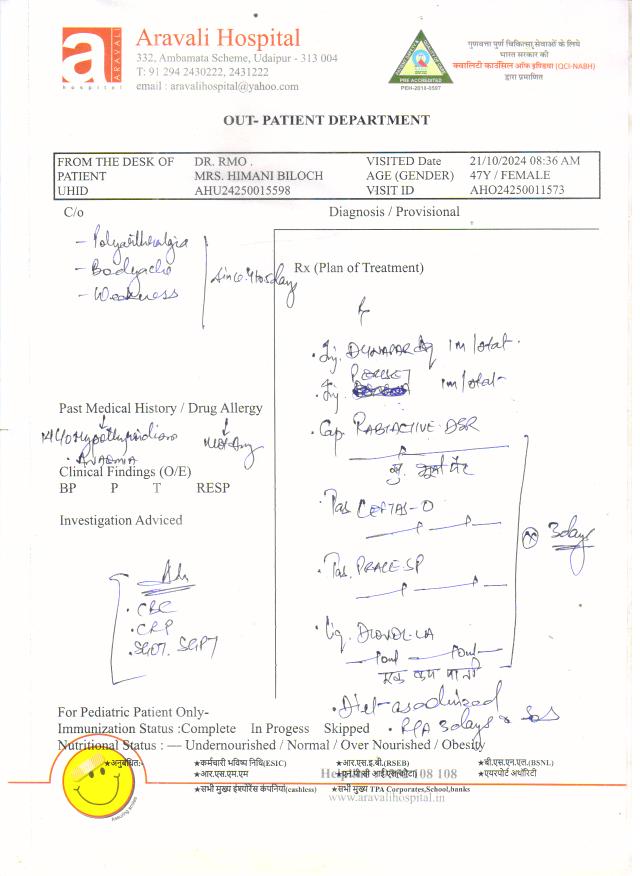 a
ARAVALI
hospital
Aravali Hospital
332, Ambamata Scheme, Udaipur - 313 004
T: 91 294 2430222, 2431222
email : aravalihospital@yahoo.com
PRE ACCREDITED
PEH-2018-0597
गुणवत्ता पूर्ण चिकित्सा सेवाओं के लिये
भारत सरकार की
क्वालिटी काउंसिल ऑफ इण्डिया (QCI-NABH)
द्वारा प्रमाणित
OUT- PATIENT DEPARTMENT
FROM THE DESK OF DR. RMO . VISITED Date 21/10/2024 08:36 AM
PATIENT MRS. HIMANI BILOCH AGE (GENDER) 47Y / FEMALE
UHID AHU24250015598 VISIT ID AHO24250011573
C/o
- Polyarthralgia
- Bodyache
- Weakness
since 4 to 5 days
Past Medical History / Drug Allergy
Hypothyroidism
Clinical Findings (O/E)
BP P T RESP
Investigation Adviced
Adv
• CBC
• CRP
• SGOT. SGPT
Diagnosis / Provisional
Rx (Plan of Treatment)
Rx
• Inj. DYNAPAR AQ 1M /stat.
• Inj. 1m /stat-
• Cap. RABTACTIVE-DSR
• Tab. CEFTAS-O
• Tab. SP
• Liq. LA
एक कप पानी
3days
• Diet-
• 3days
For Pediatric Patient Only-
Immunization Status :Complete In Progess Skipped
Nutritional Status : — Undernourished / Normal / Over Nourished / Obesity
★अनुबंधित:-
★कर्मचारी भविष्य निधि(ESIC) ★आर.एस.इ.बी.(RSEB) ★बी.एस.एन.एल.(BSNL)
★आर.एस.एम.एम 108 108 ★एयरपोर्ट अथॉरिटी
★सभी मुख्य इंश्योरेंस कंपनियां(cashless) ★सभी मुख्य TPA Corporates,School,banks
www.aravalihospital.in